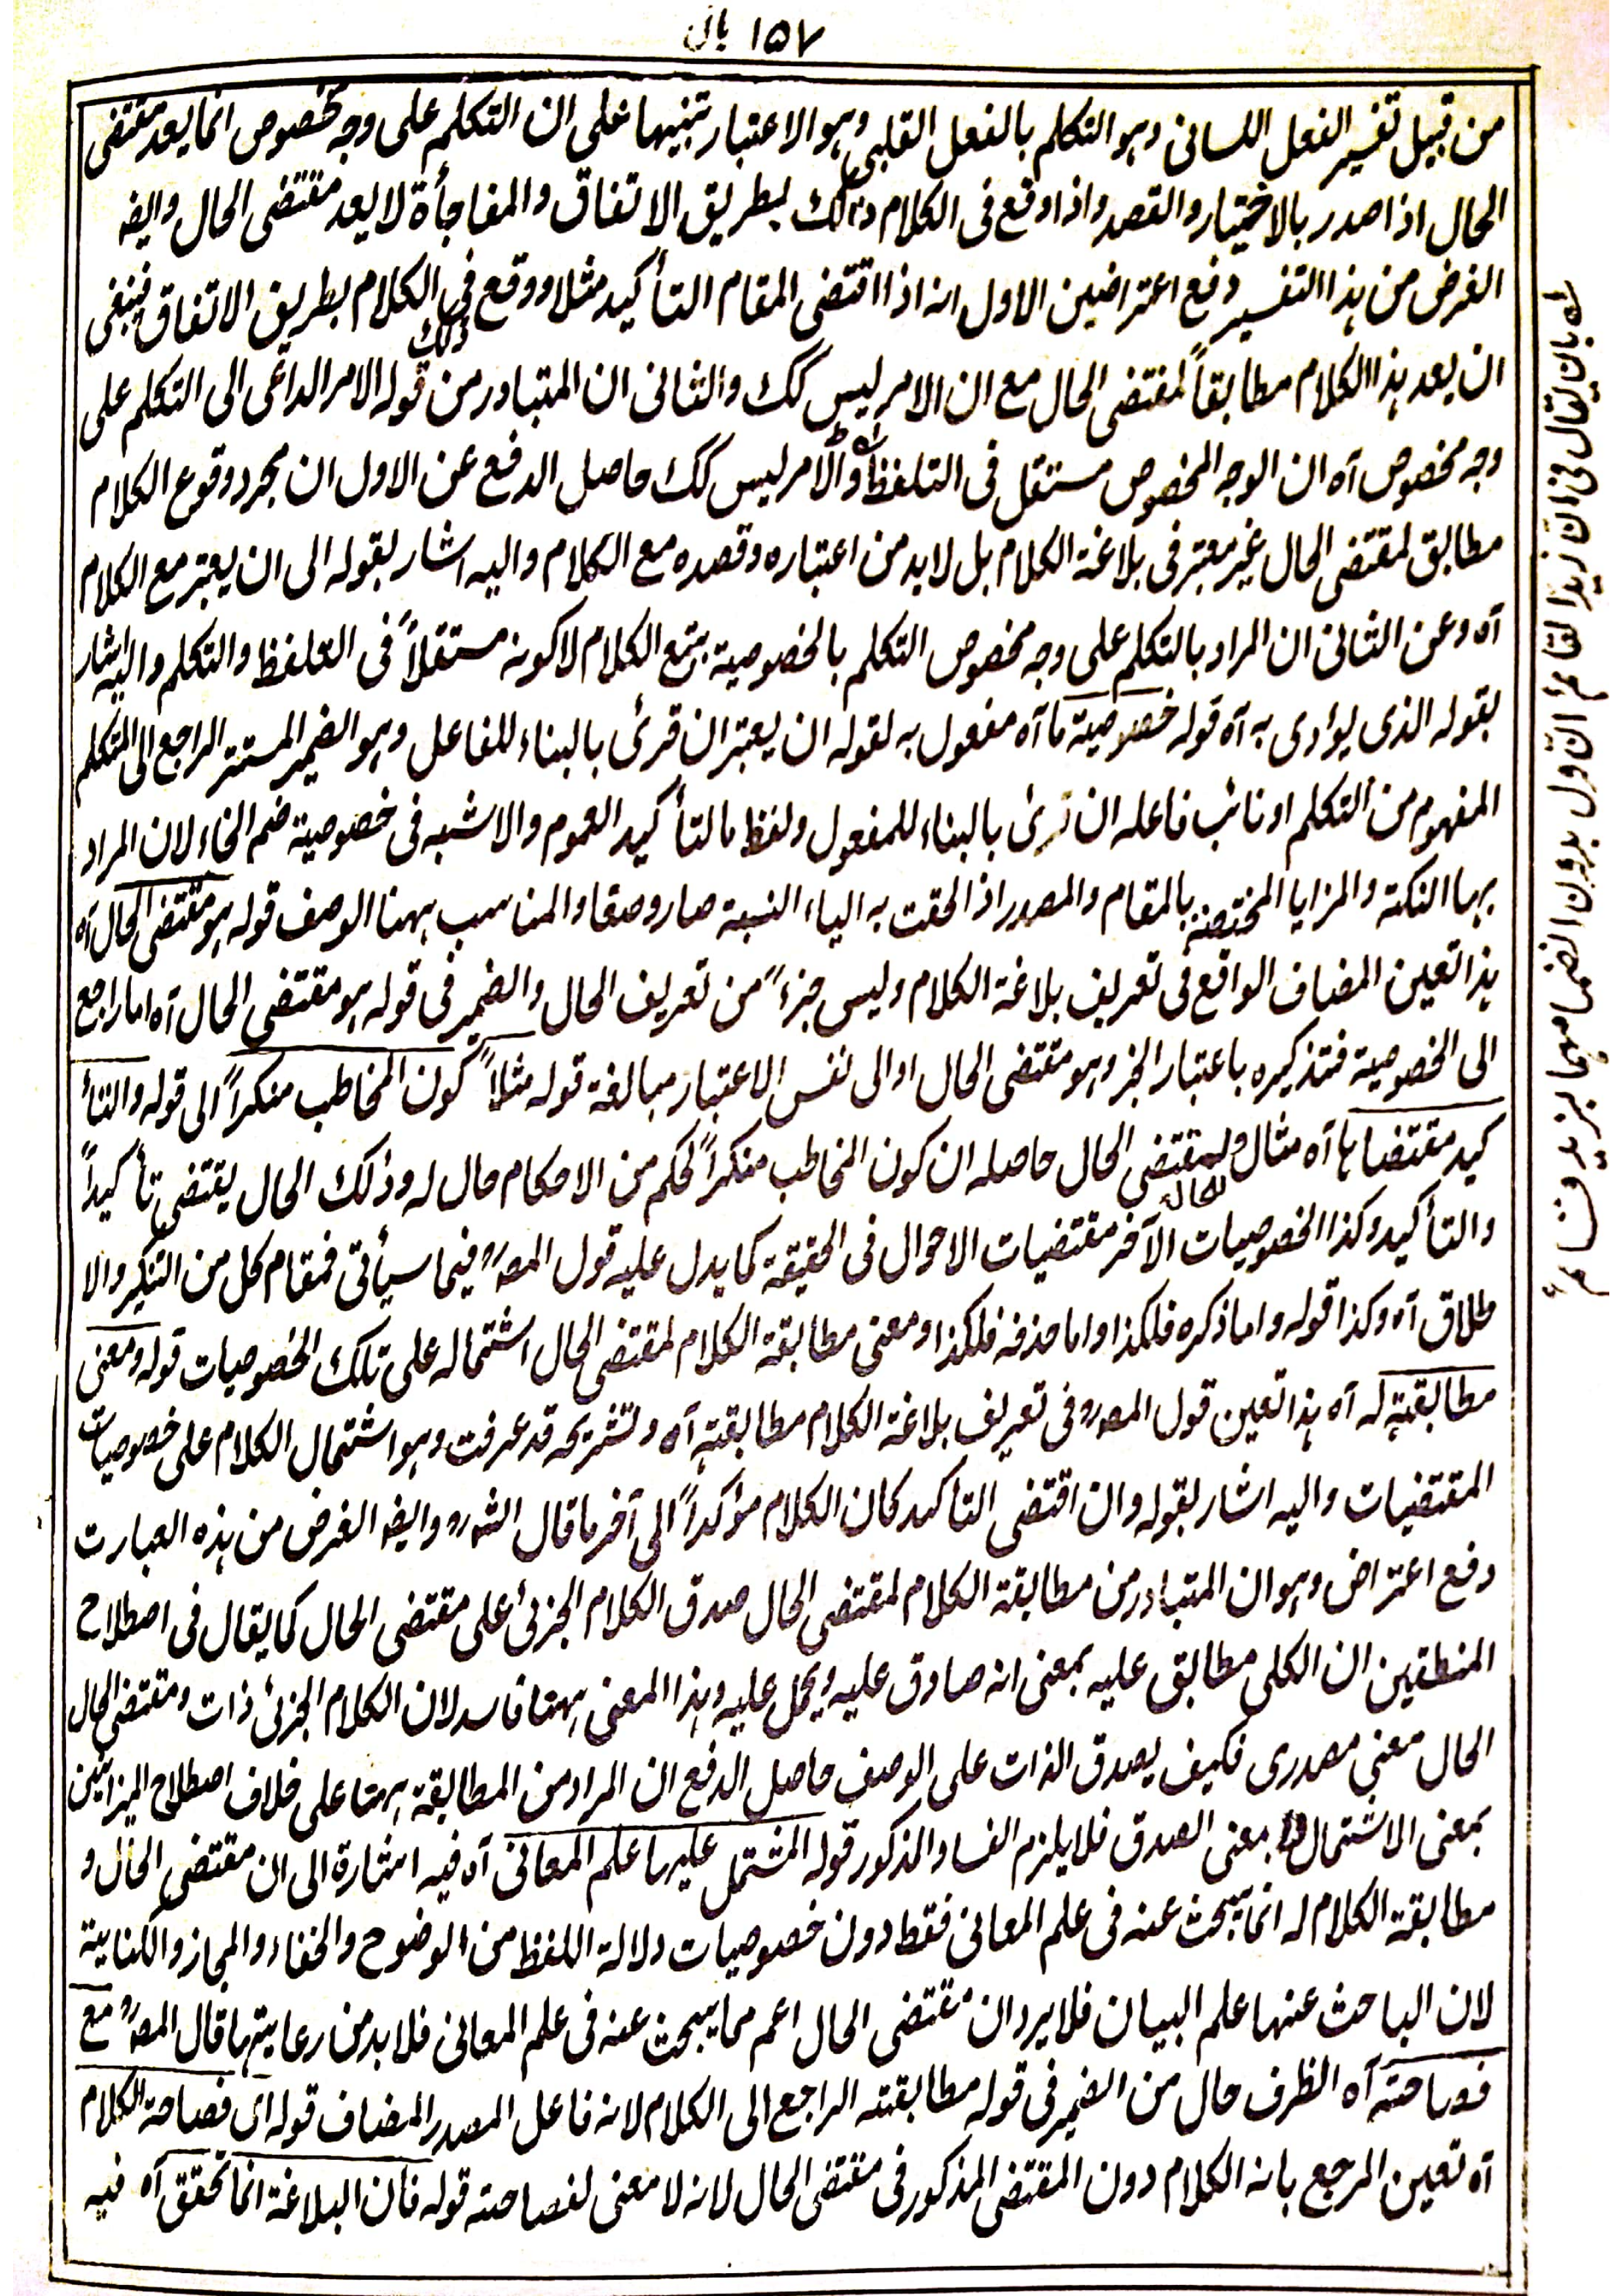 ۱۵۷
من قبیل تفسیر الفعل اللسانی وہو التکلم بالفعل القلبی وہو الاعتبار تنبیہا علی ان التکلم علی وجہ مخصوص انما یعد مقتضی
الحال اذا صدر بالاختیار والقصد واذا وقع فی الکلام ذلک بطریق الاتفاق والمفاجأۃ لا یعد مقتضی الحال وایضہ
الغرض من ہذا التفسیر دفع اعتراضین الاول انہ اذا اقتضی المقام التأکید مثلا ووقع فی الکلام بطریق الاتفاق فینبغی
ذلک
ان یعد ہذا الکلام مطابقاً لمقتضی الحال مع ان الامر لیس کک والثانی ان المتبادر من قولہ الامر الداعی الی التکلم علی
وجہ مخصوص آہ ان الوجہ المخصوص مستقل فی التلفظ والامر لیس کک حاصل الدفع عن الاول ان مجرد وقوع الکلام
مطابق لمقتضی الحال غیر معتبر فی بلاغۃ الکلام بل لابد من اعتبارہ وقصدہ مع الکلام والیہ اشار بقولہ الی ان یعتبر مع الکلام
آہ وعن الثانی ان المراد بالتکلم علی وجہ مخصوص التکلم بالخصوصیۃ بتبع الکلام لا کونہ مستقلاً فی التلفظ والتکلم والیہ اشار
بقولہ الذی یؤدی بہ آہ قولہ خصوصیۃ ما آہ مفعول بہ لقولہ ان یعتبر ان قرئ بالبناء للفاعل وہو الضمیر المستتر الراجع الی المتکلم
المفہوم من التکلم او نائب فاعلہ ان قرئ بالبناء للمفعول ولفظ ما لتأکید العموم والاشبہ فی خصوصیۃ ضم الخاء لان المراد
بہا النکتۃ والمزایا المختصۃ بالمقام والمصدر اذا لحقت بہ الیاء النسبۃ صار وصفا والمناسب ہہنا الوصف قولہ ہو مقتضی الحال آہ
ہذا تعین المضاف الواقع فی تعریف بلاغۃ الکلام ولیس جزءً من تعریف الحال والضمیر فی قولہ ہو مقتضی الحال آہ اما راجع
الی الخصوصیۃ فتذکیرہ باعتبار الخبر وہو مقتضی الحال او الی نفس الاعتبار مبالغۃ قولہ مثلاً کون المخاطب منکراً الی قولہ والتأ
کید مقتضاہا آہ مثال لمقتضی الحال حاصلہ ان کون المخاطب منکراً لحکم من الاحکام حال لہ وذلک الحال یقتضی تأکیداً
والتأکید وکذا الخصوصیات الآخر مقتضیات الاحوال فی الحقیقۃ کما یدل علیہ قول المصؒ فیما سیأتی فمقام کل من التنکیر والا
طلاق آہ وکذا قولہ واما ذکرہ فلکذا واما حذفہ فلکذا ومعنی مطابقۃ الکلام لمقتضی الحال اشتمالہ علی تلک الخصوصیات قولہ ومعنی
مطابقتہ لہ آہ ہذا تعین قول المصؒ فی تعریف بلاغۃ الکلام مطابقتہ آہ وتشریحہ قد عرفت وہو اشتمال الکلام علی خصوصیات
المقتضیات والیہ اشار بقولہ وان اقتضی التاکید کان الکلام مؤکداً الی آخر ما قال الشؒ وایضہ الغرض من ہذہ العبارت
دفع اعتراض وہو ان المتبادر من مطابقۃ الکلام لمقتضی الحال صدق الکلام الجزئی علی مقتضی الحال کما یقال فی اصطلاح
المنطقین ان الکلی مطابق علیہ بمعنی انہ صادق علیہ ویحمل علیہ وہذا المعنی ہہنا فاسد لان الکلام الجزئی ذات ومقتضی الحال
الحال معنی مصدری فکیف یصدق الذات علی الوصف حاصل الدفع ان المراد من المطابقۃ ہہنا علی خلاف اصطلاح المیزانیین
بمعنی الاشتمال لا بمعنی الصدق فلا یلزم الفساد المذکور قولہ المشتمل علیہا علم المعانی آہ فیہ اشارۃ الی ان مقتضی الحال و
مطابقۃ الکلام لہ انما یبحث عنہ فی علم المعانی فقط دون خصوصیات دلالۃ اللفظ من الوضوح والخفاء والمجاز والکنایۃ
لان الباحث عنہا علم البیان فلا یرد ان مقتضی الحال اعم مما یبحث عنہ فی علم المعانی فلابد من رعایتہا قال المصؒ مع
فصاحتہ آہ الظرف حال من الضمیر فی قولہ مطابقتہ الراجع الی الکلام لانہ فاعل المصدر المضاف قولہ ای فصاحۃ الکلام
آہ تعین المرجع بانہ الکلام دون المقتضی المذکور فی مقتضی الحال لانہ لا معنی لفصاحتہ قولہ فان البلاغۃ انما تحقق آہ فیہ